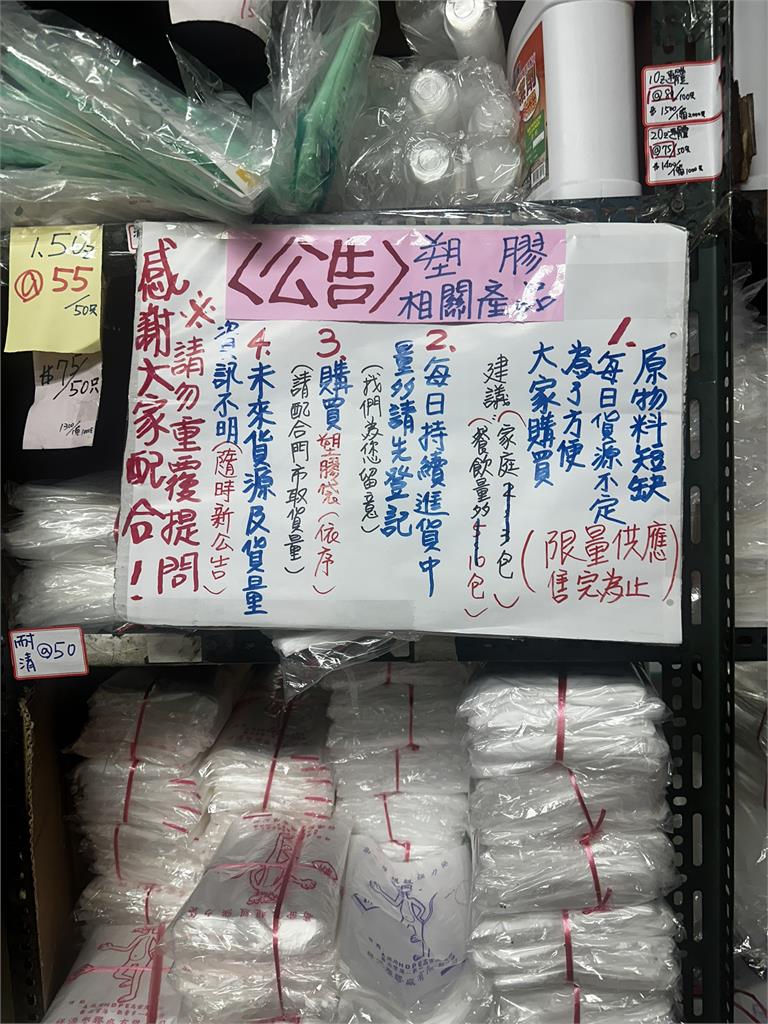 〈公告〉塑膠
相關產品
1.原物料短缺
每日貨源不定
為了方便
大家購買
(限量供應
售完為止)
建議(家庭2-3包
餐飲量多5-10包)
2.每日持續進貨中
量多請先登記
(我們為您留意)
3.購買塑膠袋(依序)
(請配合門市取貨量)
4.未來貨源及貨量
資訊不明(隨時新公告)
※請勿重覆提問
感謝大家配合!
1.5oz
@55
/50只
$75/
50只
耐清@50
10z
/100只
$1500/
20z
@75/50只
$1400/